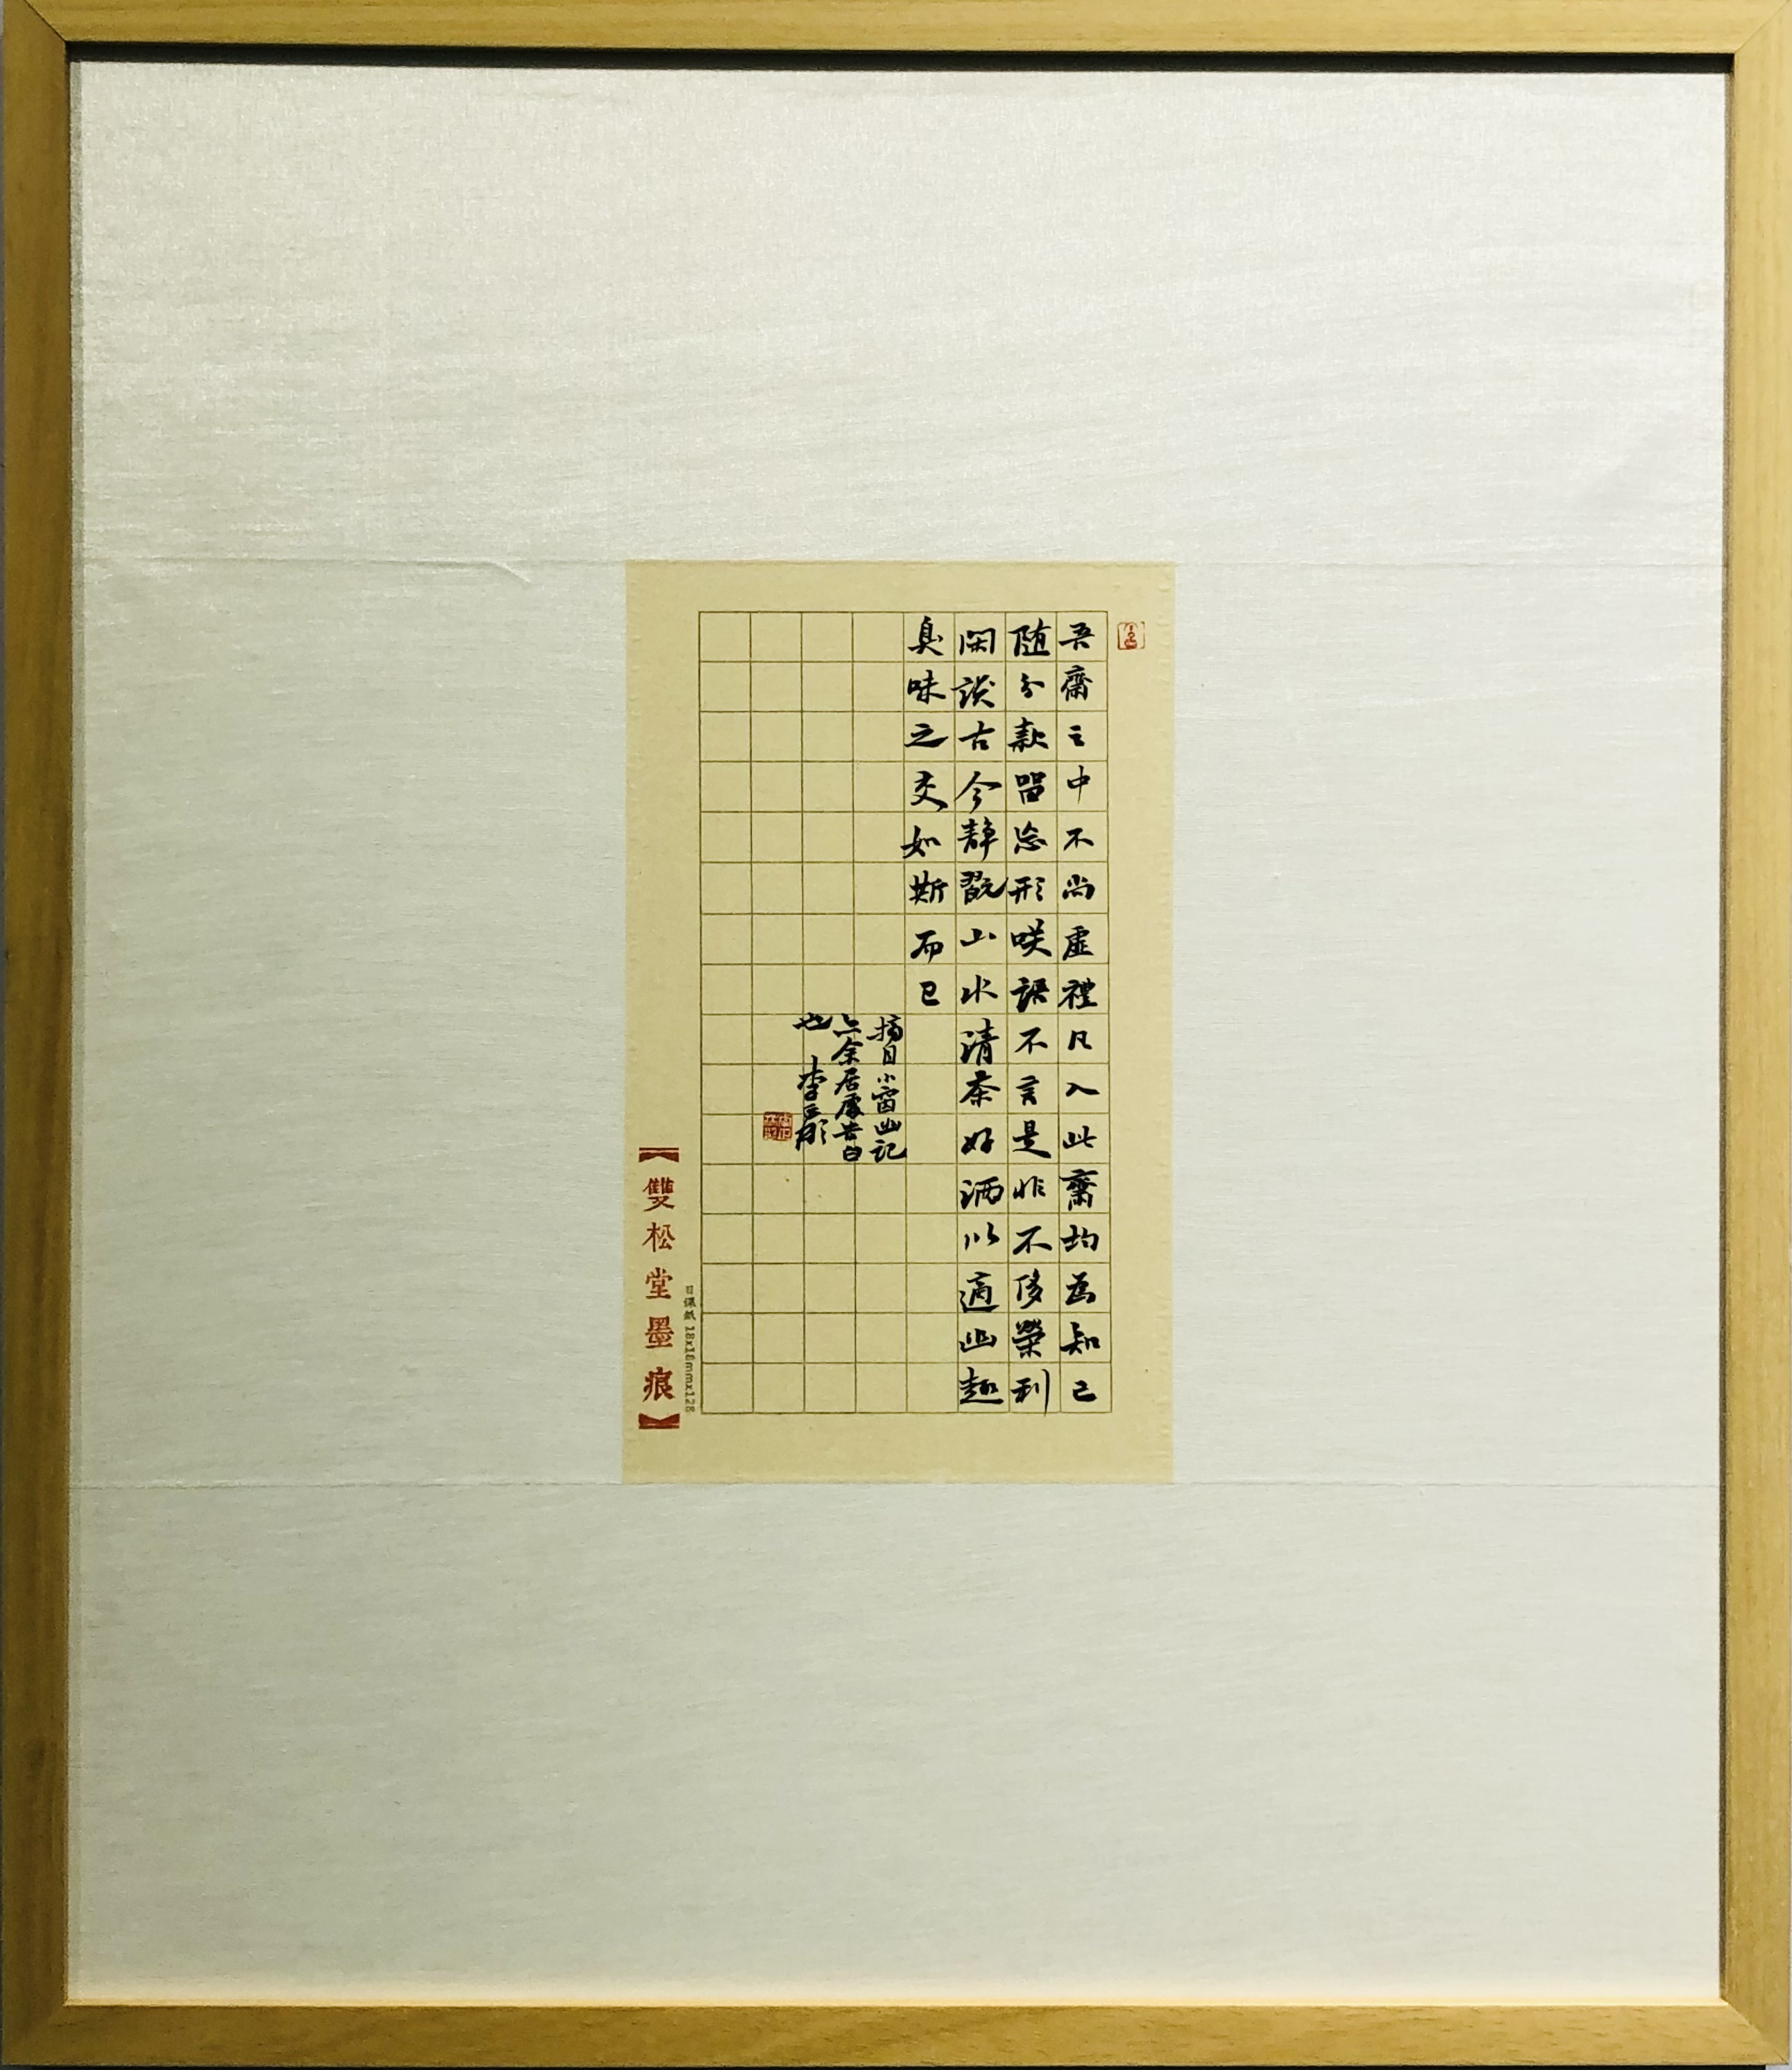 吾齋之中不尚虛禮凡入此齋均為知己
随分款留忘形咲語不言是非不侈榮利
閑談古今靜翫山水清茶好酒以適幽趣
臭味之交如斯而已
摘自小窗幽記
六余居處告白
也 李三彤
雙松堂墨痕
日課紙 18x18mmx128